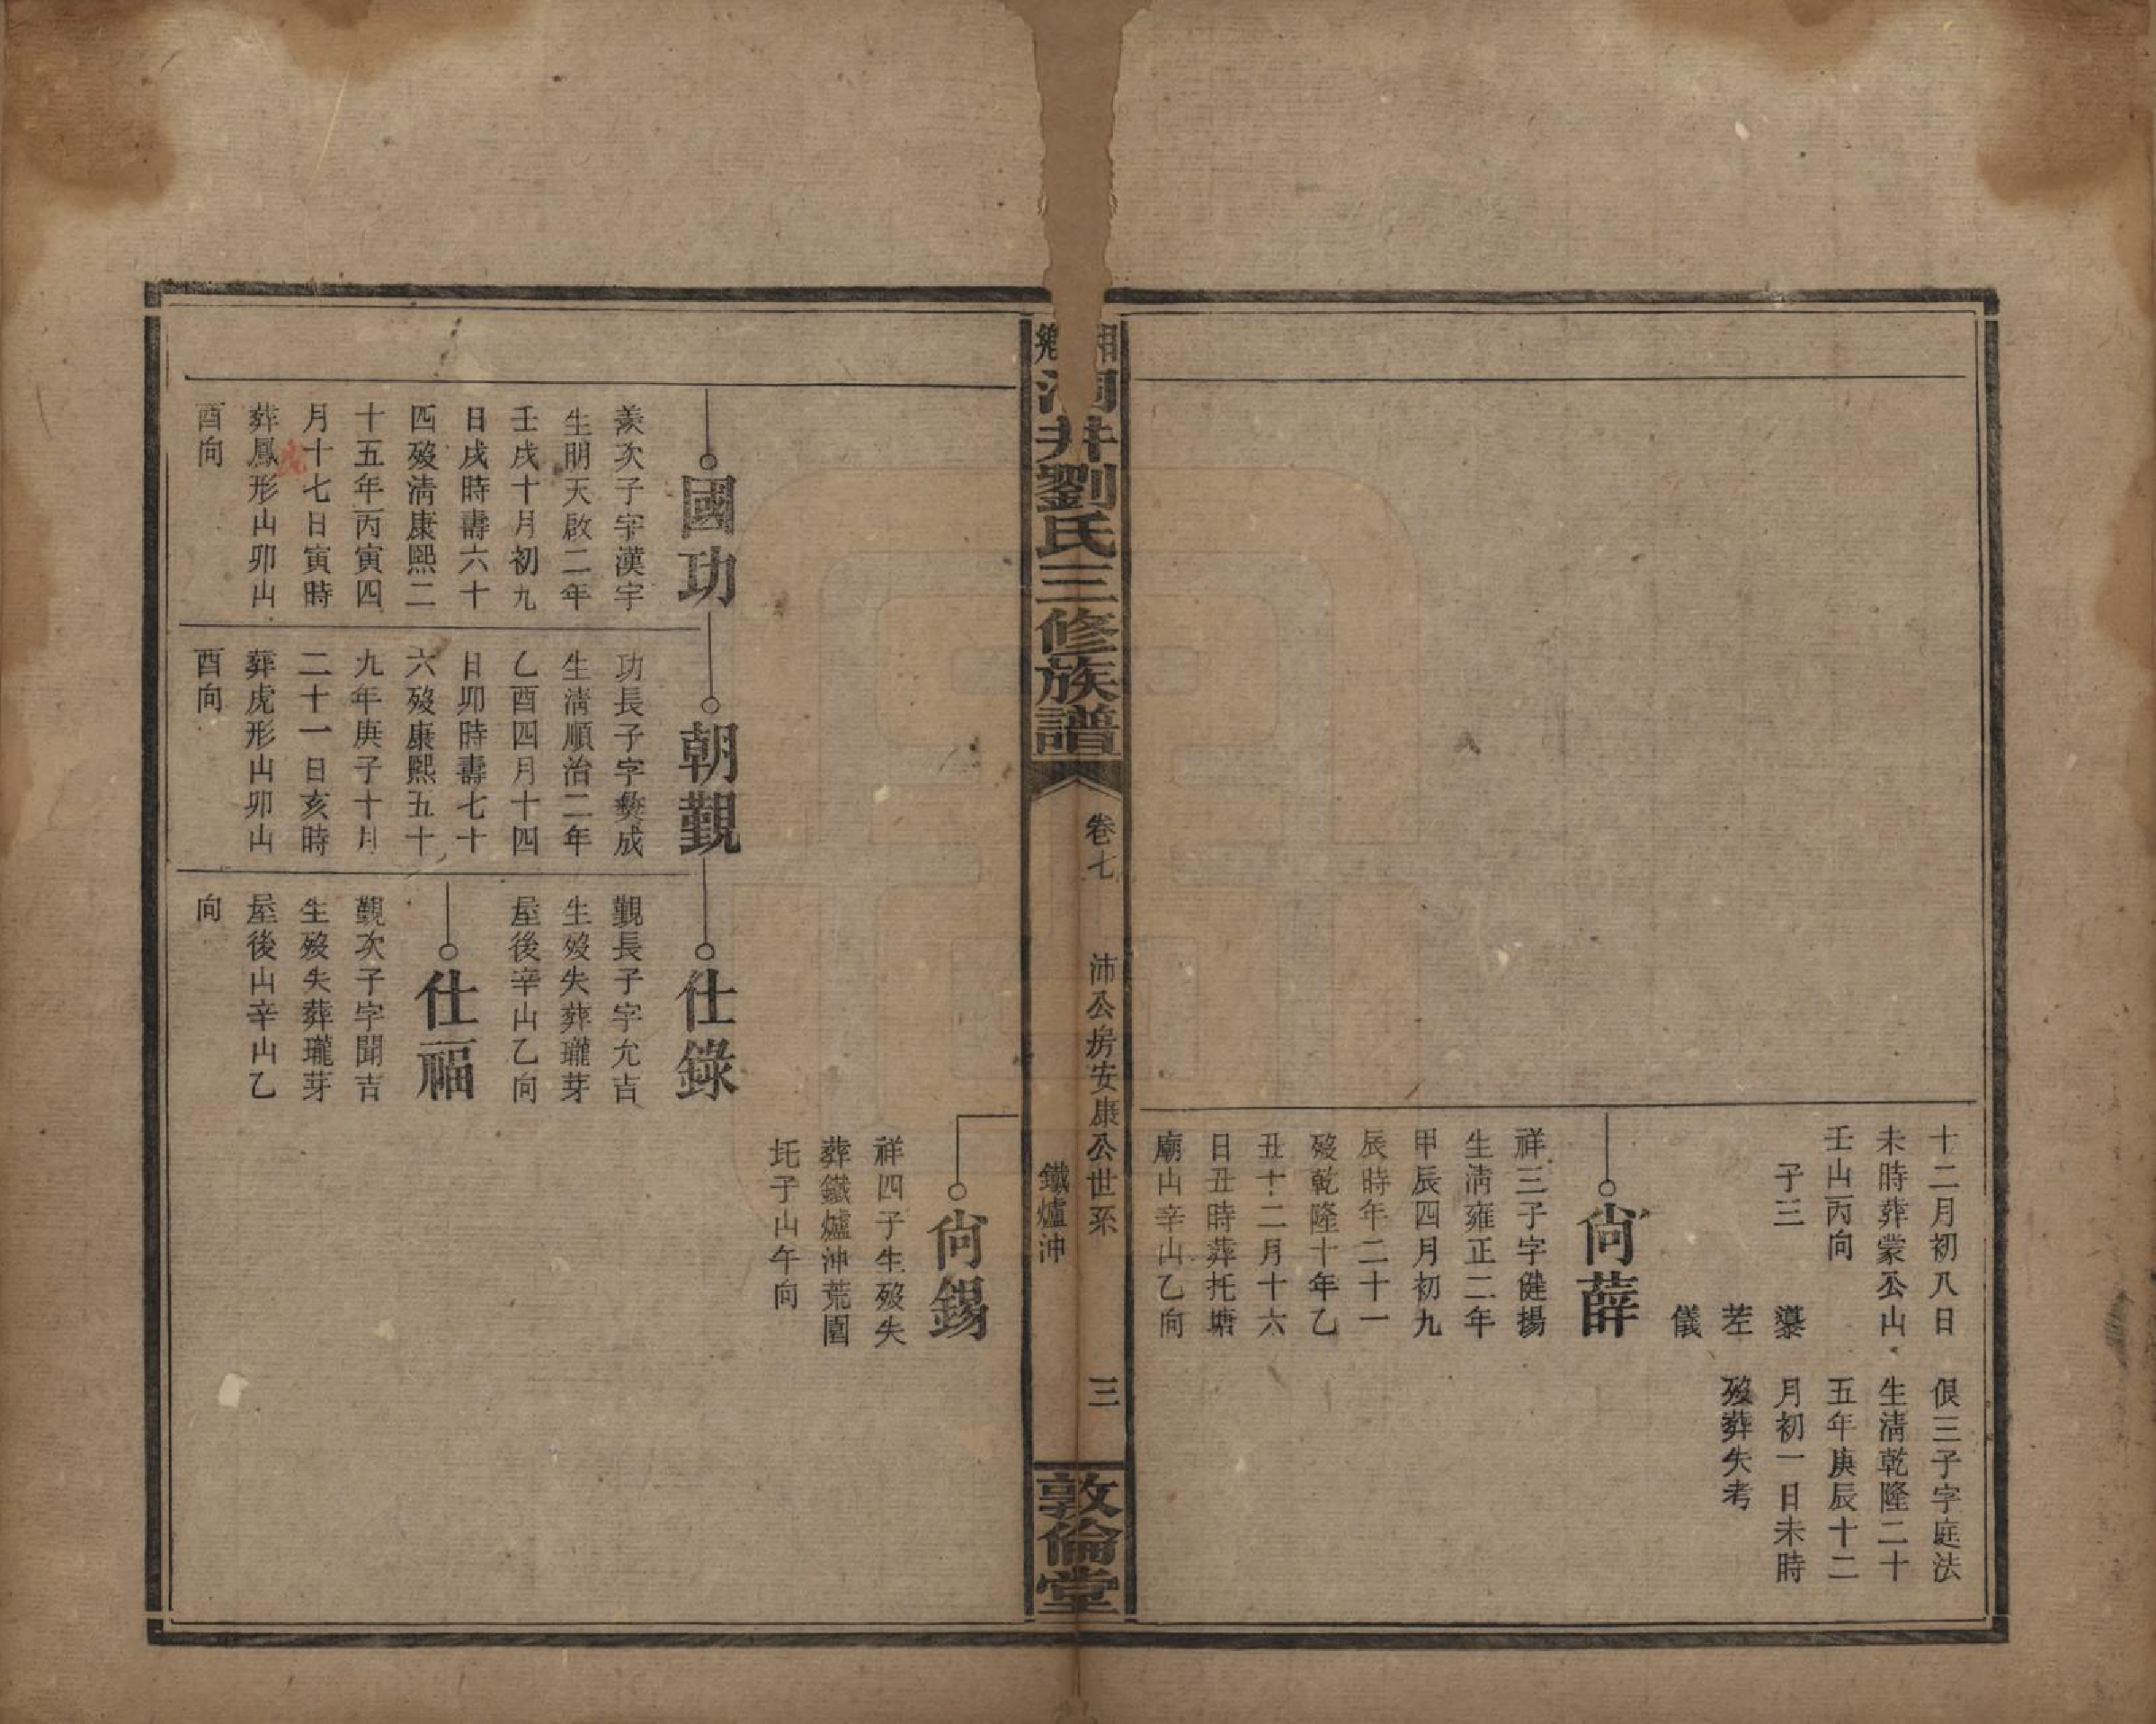 十二月初八日
未時葬蒙公山
壬山丙向
子三
鼜
茬
儀
俍三子字庭法
生清乾隆二十
五年庚辰十二
月初一日未時
歿葬失考
尙薛
祥三子字健揚
生清雍正二年
甲辰四月初九
辰時年二十一
歿乾隆十年乙
丑十二月十六
日丑時葬托塘
廟山辛山乙向
湘鄉洞井劉氏三修族譜
卷七
沛公房安康公世系
鐵爐沖
三
敦倫堂
尙錫
祥四子生歿失
葬鐵爐沖荒園
坉子山午向
國功
羨次子字漢宇
生明天啟二年
壬戌十月初九
日戌時壽六十
四歿清康熙二
十五年丙寅四
月十七日寅時
葬鳳形山卯山
酉向
朝覲
功長子字彝成
生清順治二年
乙酉四月十四
日卯時壽七十
六歿康熙五十
九年庚子十月
二十一日亥時
葬虎形山卯山
酉向
仕錄
覲長子字允吉
生歿失葬瓏芽
屋後辛山乙向
仕福
覲次子字聞吉
生歿失葬瓏芽
屋後山辛山乙
向